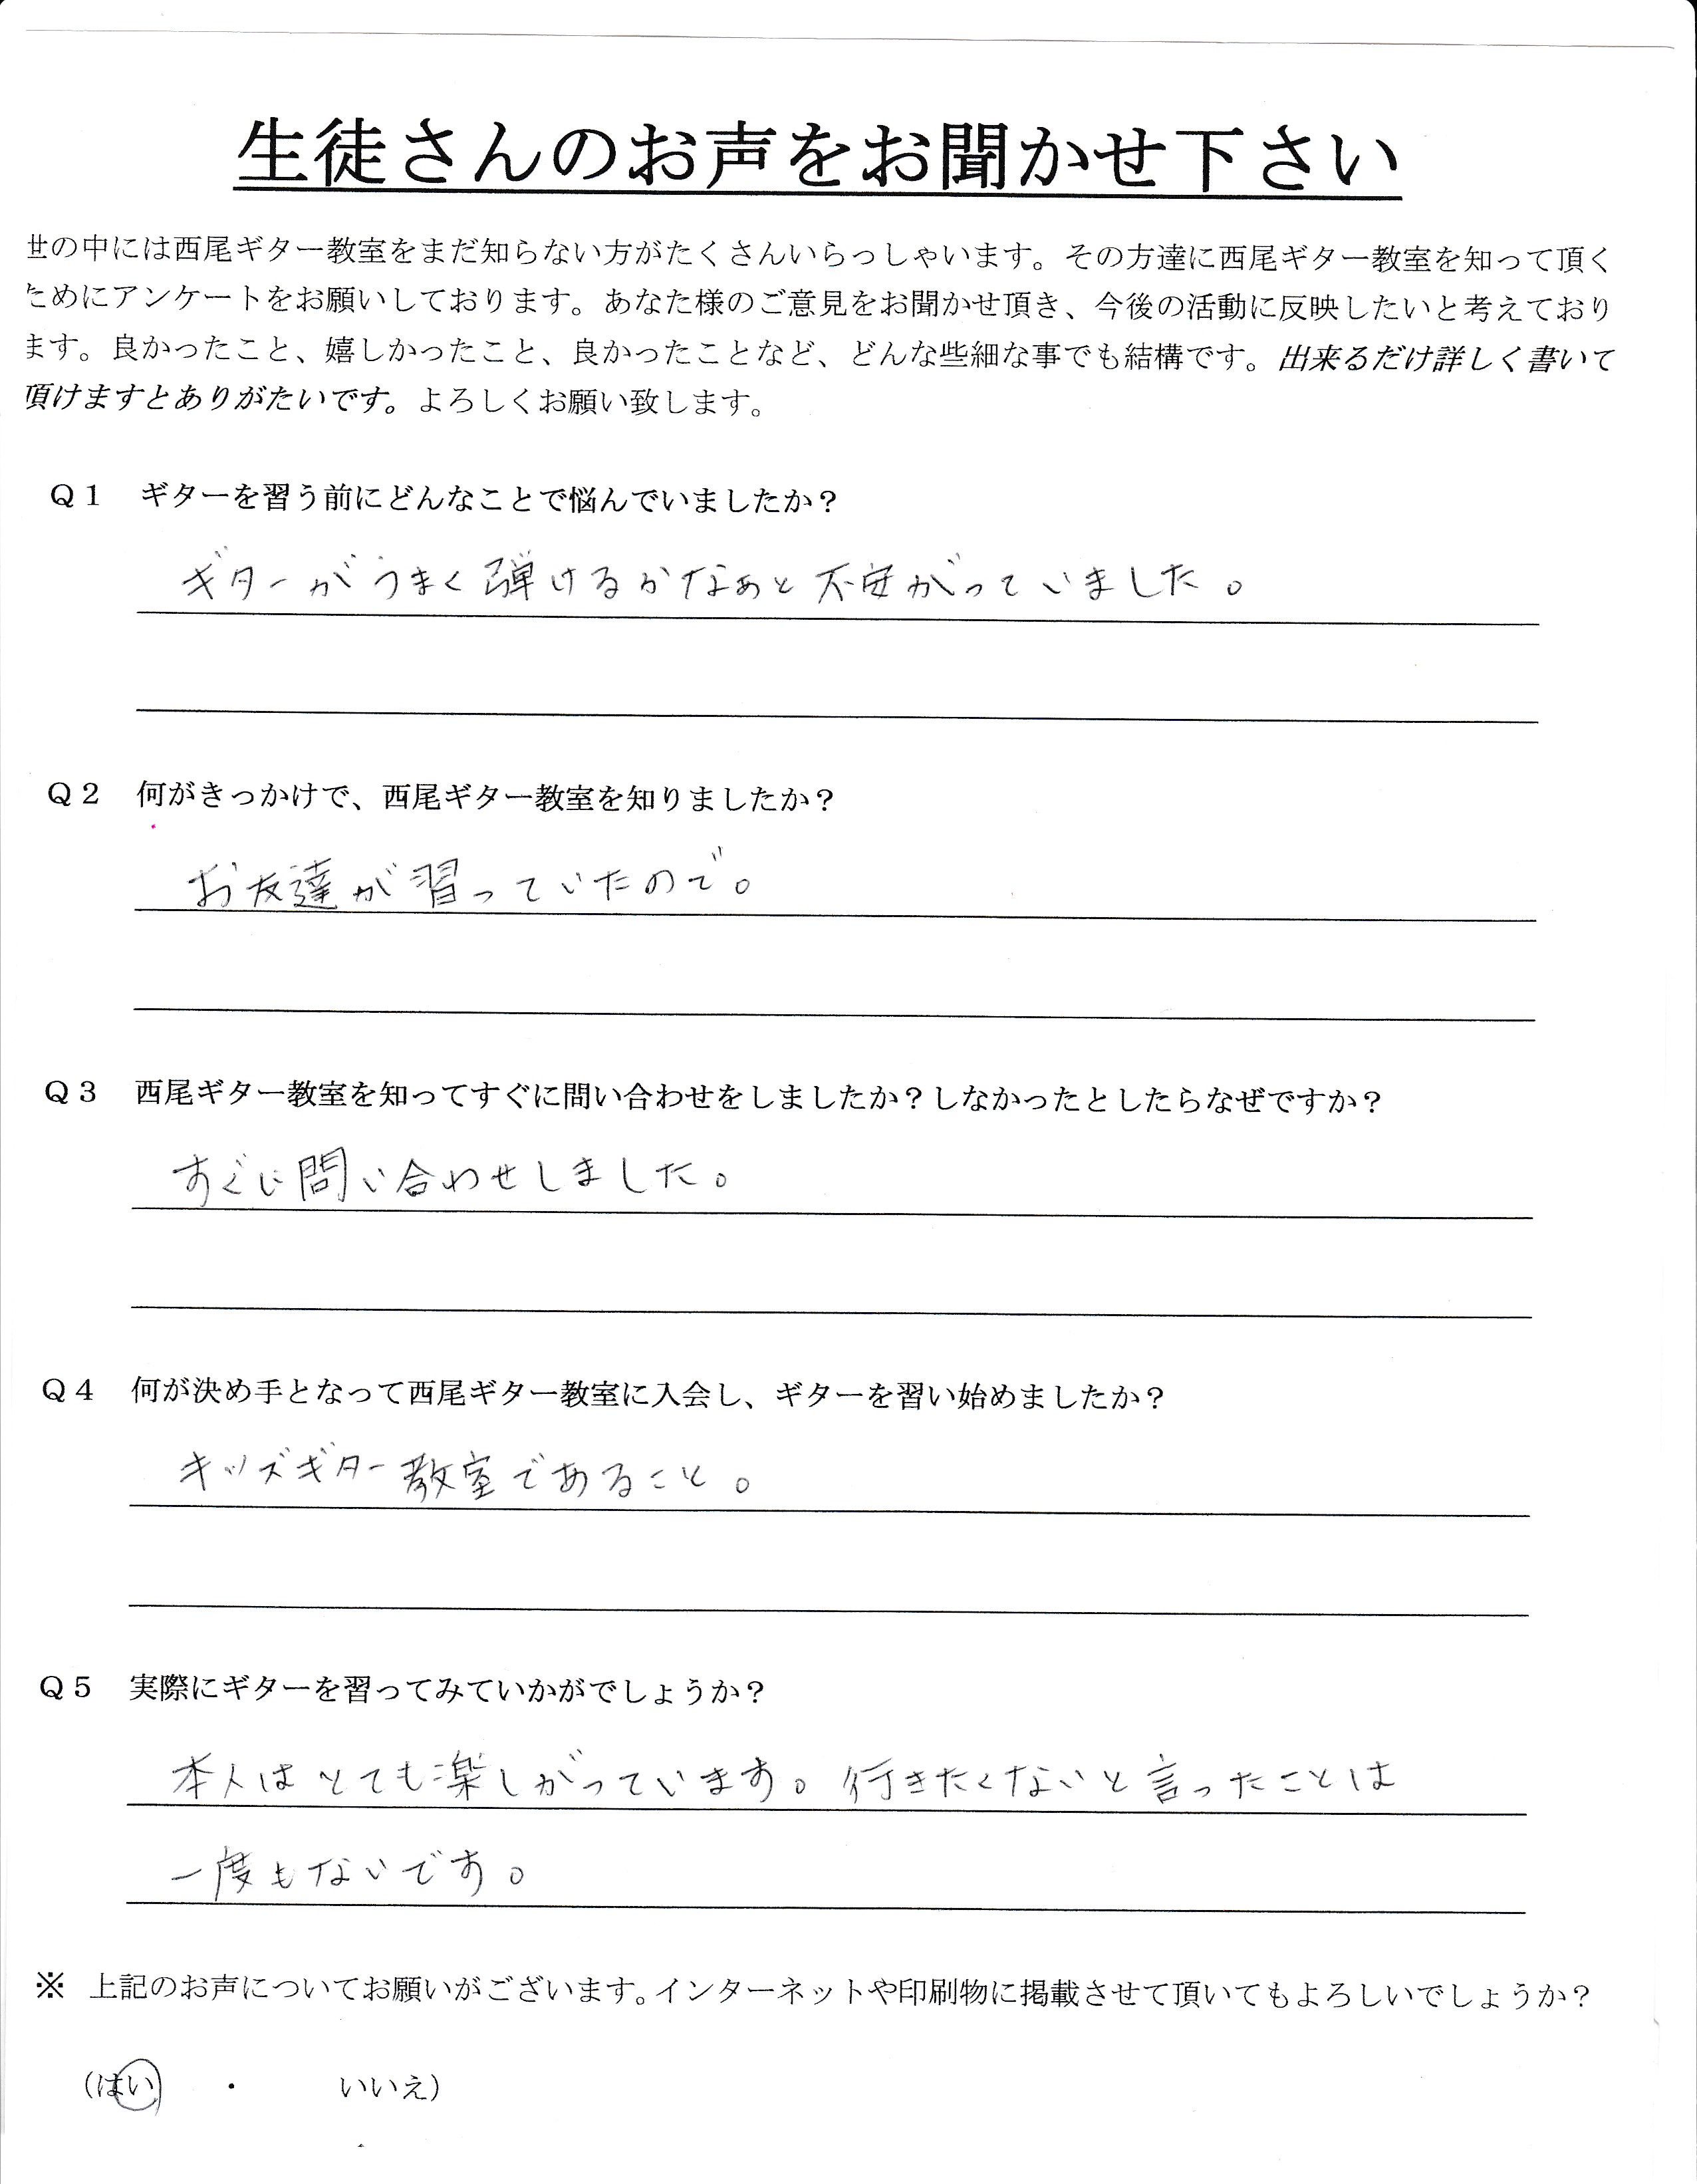 生徒さんのお声をお聞かせ下さい
世の中には西尾ギター教室をまだ知らない方がたくさんいらっしゃいます。その方達に西尾ギター教室を知って頂く
ためにアンケートをお願いしております。あなた様のご意見をお聞かせ頂き、今後の活動に反映したいと考えており
ます。良かったこと、嬉しかったこと、良かったことなど、どんな些細な事でも結構です。出来るだけ詳しく書いて
頂けますとありがたいです。よろしくお願い致します。
Q1 ギターを習う前にどんなことで悩んでいましたか?
ギターがうまく弾けるかなぁと不安がっていました。
Q2 何がきっかけで、西尾ギター教室を知りましたか?
お友達が習っていたので。
Q3 西尾ギター教室を知ってすぐに問い合わせをしましたか?しなかったとしたらなぜですか?
すぐに問い合わせしました。
Q4 何が決め手となって西尾ギター教室に入会し、ギターを習い始めましたか?
キッズギター教室であること。
Q5 実際にギターを習ってみていかがでしょうか?
本人はとても楽しがっています。行きたくないと言ったことは
一度もないです。
※ 上記のお声についてお願いがございます。インターネットや印刷物に掲載させて頂いてもよろしいでしょうか?
(はい ・ いいえ)